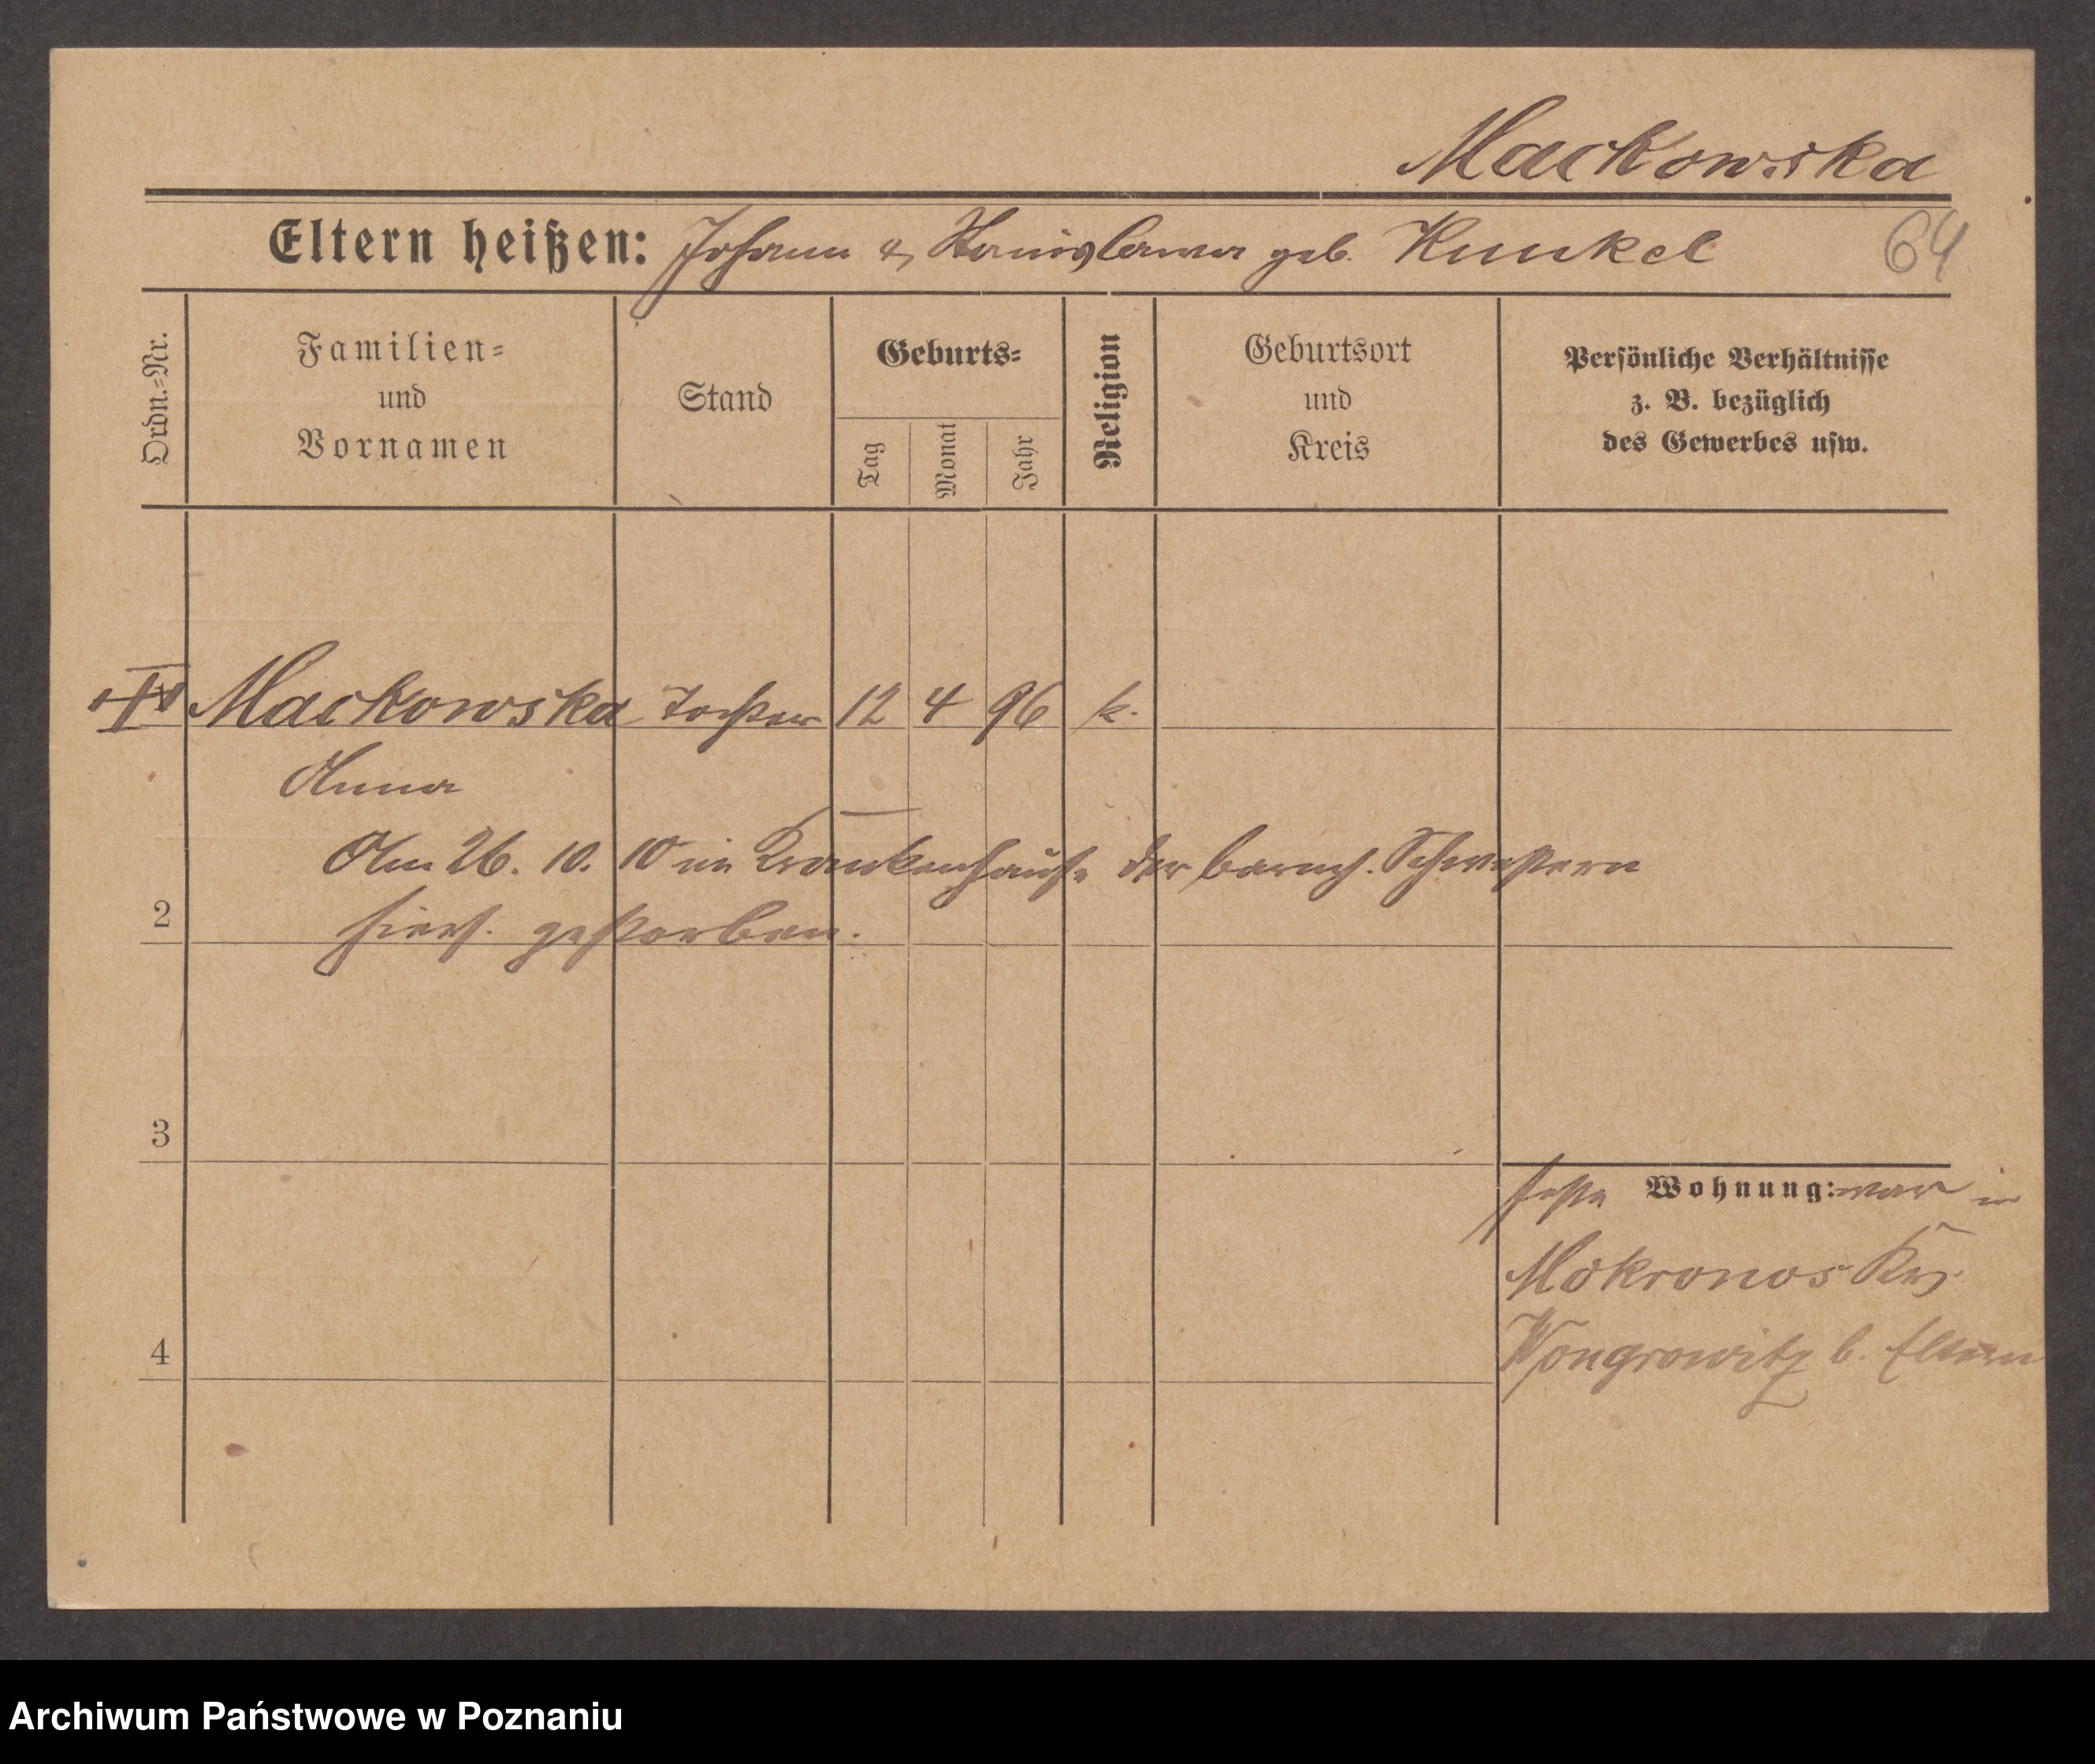 Mackowska
Eltern heißen: Johann & Stanislawa geb. Kunkel
64
Ordn.-Nr.
Familien-
und
Vornamen
Stand
Geburts-
Tag
Monat
Jahr
Religion
Geburtsort
und
Kreis
Persönliche Verhältnisse
z. B. bezüglich
des Gewerbes usw.
Mackowska Tochter 12 4 96 k.
Anna
Am 26. 10. 10 im Krankenhause der barmh. Schwestern
2
hiers. gestorben.
3
feste Wohnung: war in
Mokronos Krs
4
Wongrowitz b. Eltern
Archiwum Państwowe w Poznaniu